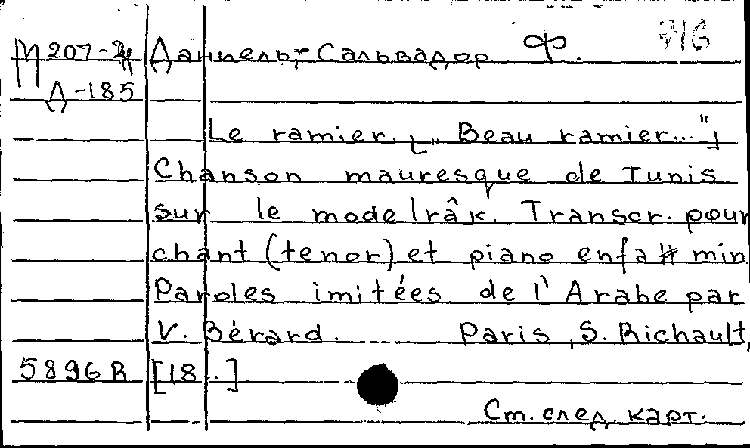 М 207-24 Даниель-Сальвадор Ф. 716
Д-185
Le ramier. [„Beau ramier..."]
Chanson mauresque de Tunis
sur le mode lrâk. Transcr. pour
chant (tenor) et piano en fa # min
Paroles imitées de l'Arabe par
V. Bérard. Paris, S. Richault,
5896R [18..]
См. след. карт.